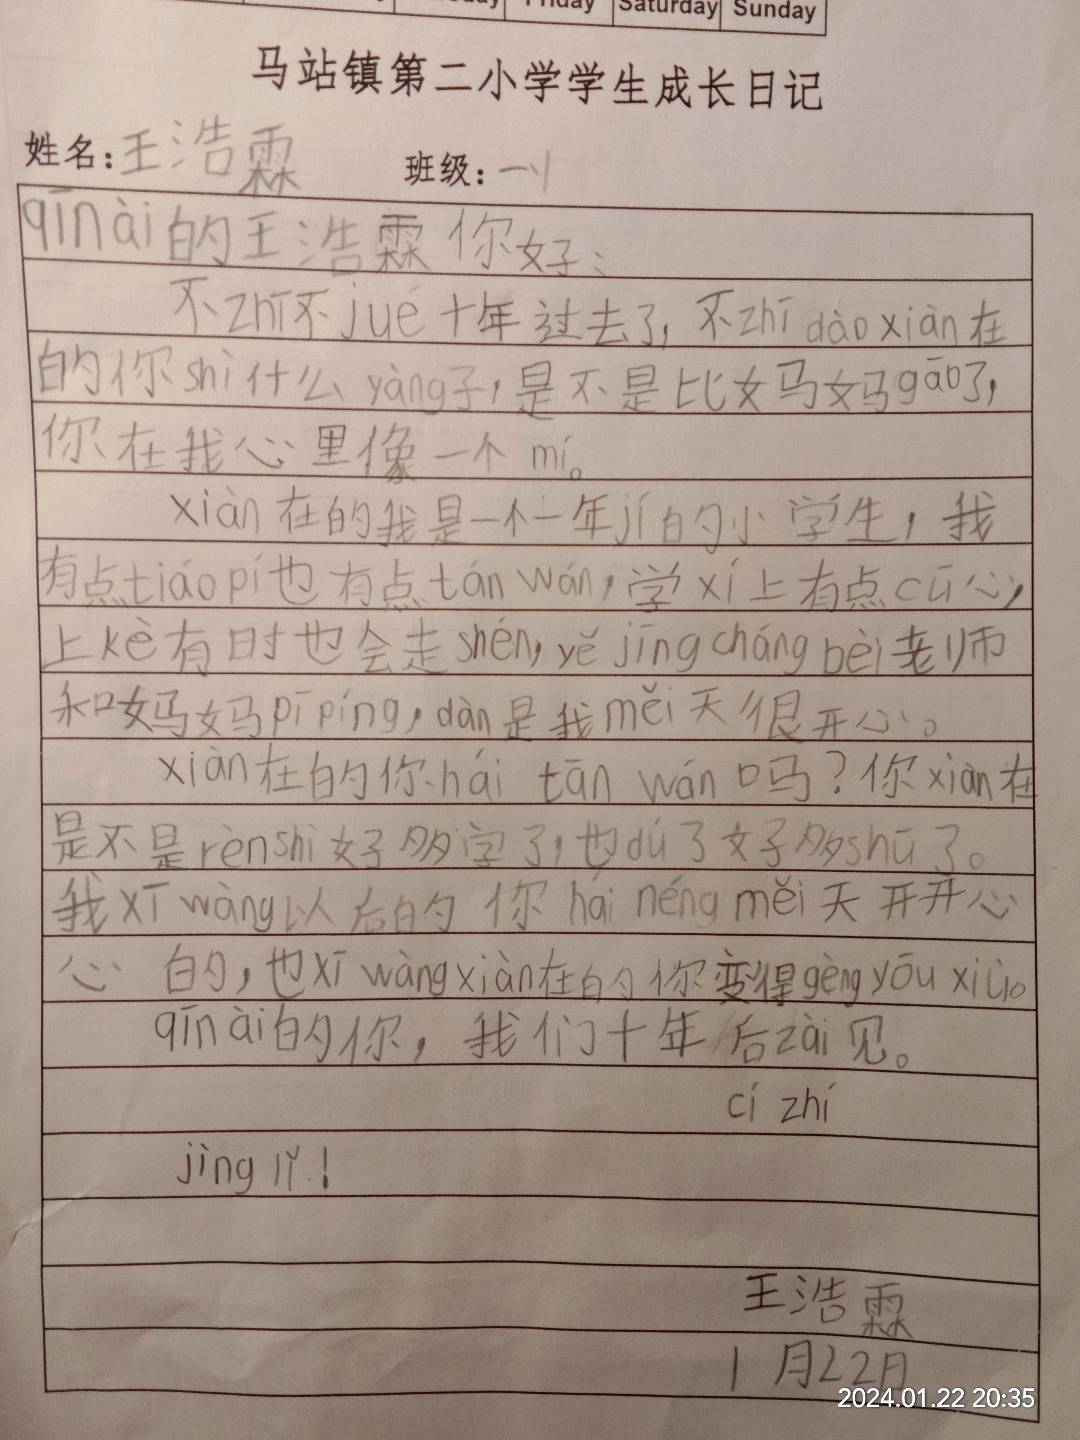 Friday Saturday Sunday
马站镇第二小学学生成长日记
姓名:王浩霖 班级:一1
qīnài的王浩霖你好:
不zhī不jué十年过去了,不zhī dào xiàn在
的你shì什么yàng子,是不是比妈妈gāo了,
你在我心里像一个mí。
xiàn在的我是一个一年jí的小学生,我
有点tiáo pí也有点tán wán,学xí上有点cū心,
上kè有时也会走shén,yě jīng cháng bèi老师
和妈妈pī píng,dàn是我měi天很开心。
xiàn在的你hái tān wán吗?你xiàn在
是不是rèn shi好多字了,也dú了好多shū了。
我xī wàng以后的你hái néng měi天开开心
心的,也xī wàng xiàn在的你变得gèng yōu xiù。
qīn ài的你,我们十年后zài见。
cí zhí
jìng lǐ!
王浩霖
1月22月
2024.01.22 20:35